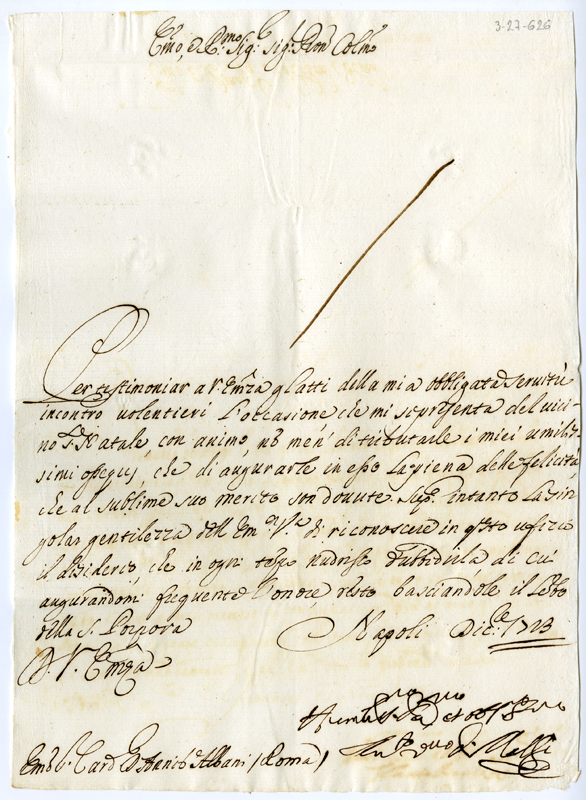 3-27-626
Emo, e Rmo Sig.r Sig.r Pron Colmo
Per testimoniar a V. Emza gl'atti della mia obbligata servitù
incontro volentieri l'occasione che mi si presenta del vici-
no S. Natale, con animo, nō men' di tributarle i miei umilis-
simi ossequj, che di augurarle in esso la piena delle felicità,
che al sublime suo merito son dovute. Supp. intanto la sin
golar gentilezza dell' Em.a V.a di riconoscere in qsto uffizio
il desiderio, che in ogni tempo nudrisco d'ubbidirla di cui
augurandomi frequente l'onore, resto basciandole il Lebo
della S. Porpora
Napoli Dic.e 1723
D. V. Emza
Humiliss.
Emo S. Card. Annib. Albani (Roma)